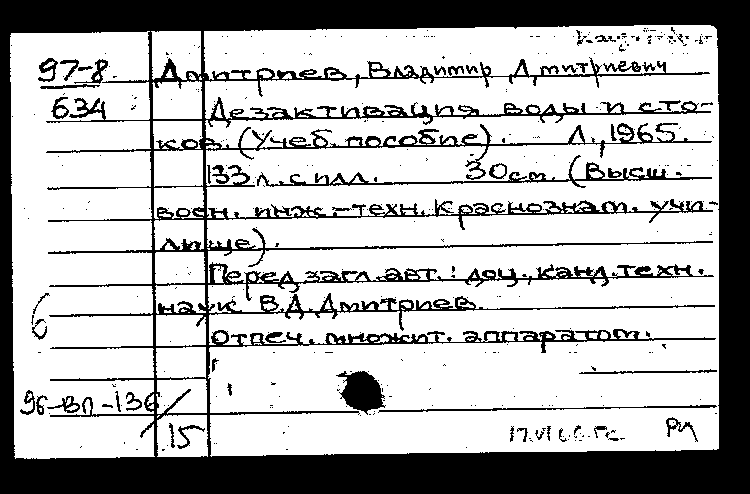 97-8 Дмитриев, Владимир Дмитриевич
634 Дезактивация воды и сто-
ков. (Учеб. пособие). Л., 1965.
133 л. с илл. 30 см. (Высш.
воен. инж.-техн. Краснознам. учи-
лище).
Перед загл. авт.: доц., канд. техн.
наук В.Д. Дмитриев.
6
Отпеч. множит. аппаратом.
96-ВП-136/15
17.VI 66. Гс РИ